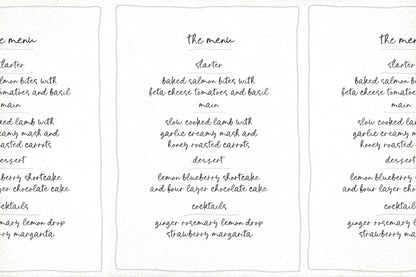 the menu
starter
baked salmon bites with
feta cheese tomatoes and basil
main
slow cooked lamb with
garlic creamy mash and
honey roasted carrots
dessert
lemon blueberry shortcake
and four layer chocolate cake
cocktails
ginger rosemary lemon drop
strawberry margarita
e menu
starter
salmon bites with
matoes and basil
main
ed lamb with
eamy mash and
oasted carrots
dessert
eberry shortcake
yer chocolate cake
cocktails
emary lemon drop
rry margarita
the men
starter
baked salmon bi
feta cheese tomatoe
main
slow cooked la
garlic creamy
honey roasted
dessert
lemon blueberry
and four layer cho
cocktails
ginger rosemary
strawberry m